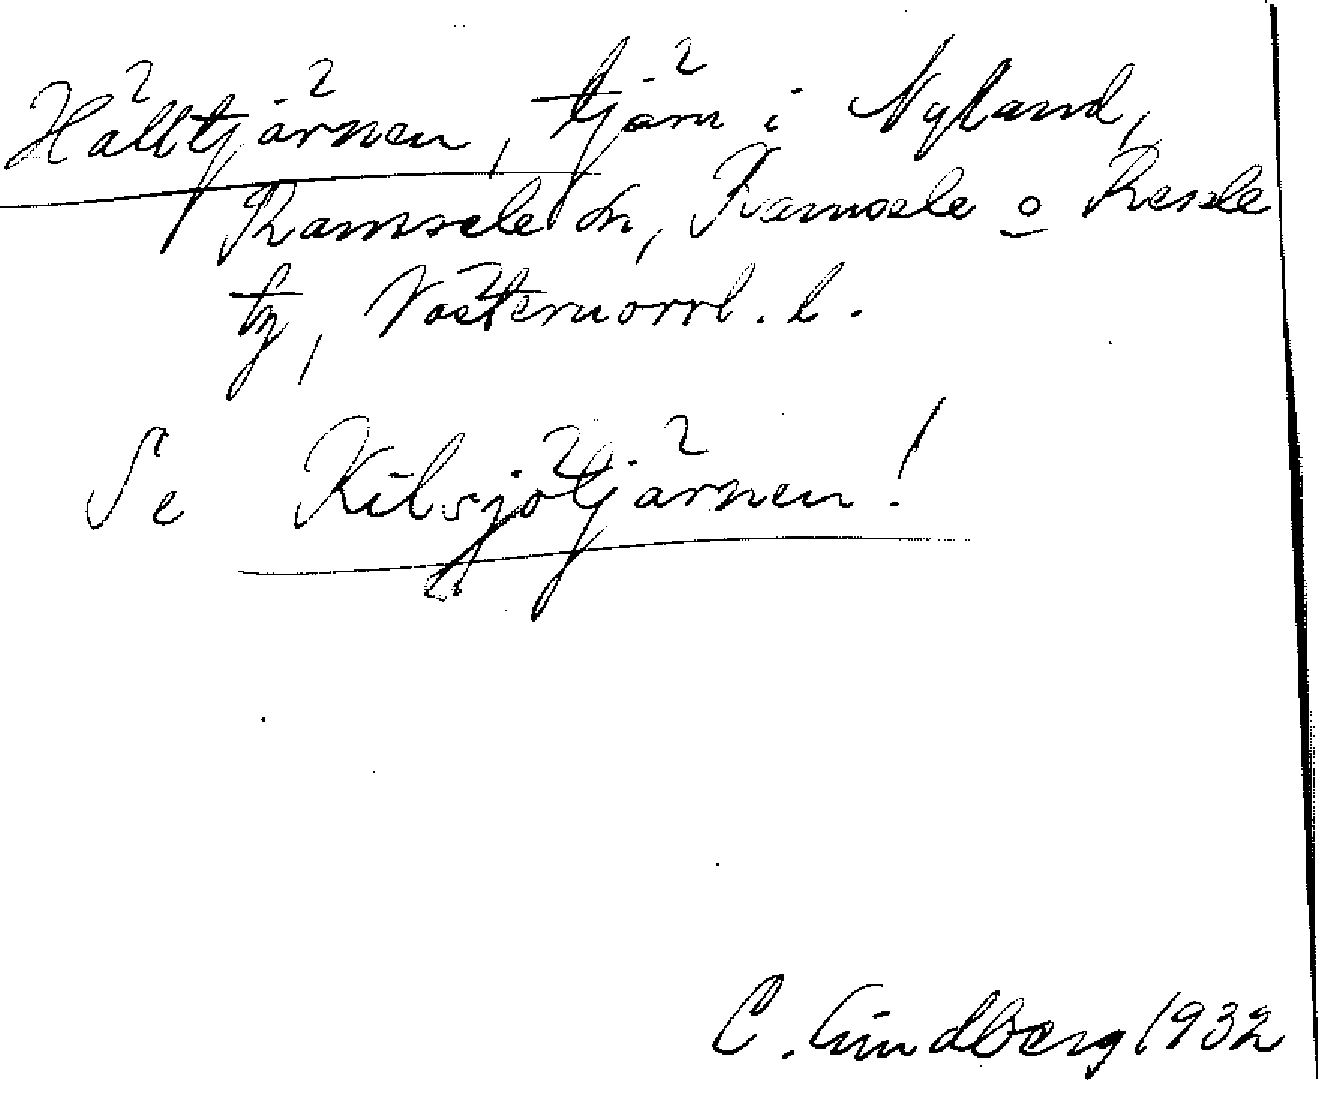 Hålltjärnen, tjärn i Nyland,
Ramsele sn, Ramsele o Resele
tg, Västernorrl. l.
Se Kilsjötjärnen!
C. Lindberg 1932